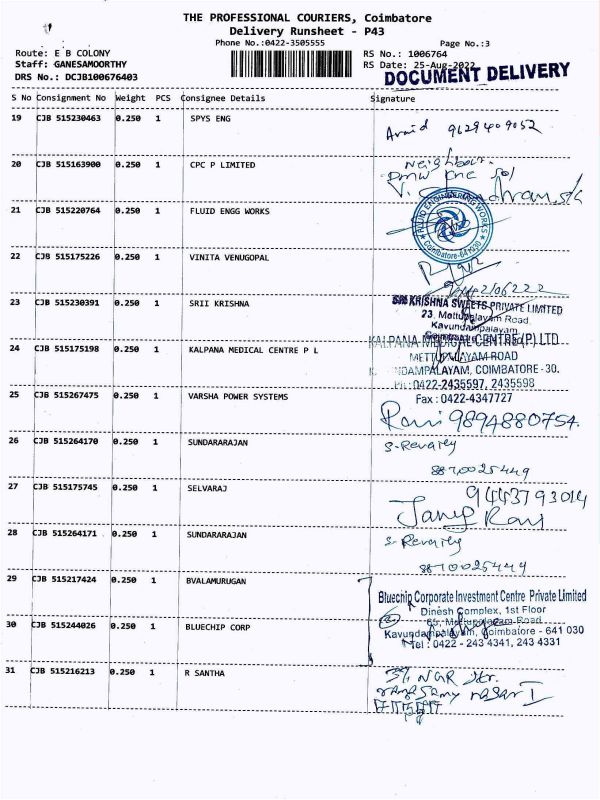 THE PROFESSIONAL COURIERS, Coimbatore
Delivery Runsheet - P43
Phone No.:0422-3505555
Page No.:3
Route: E B COLONY
RS No.: 1006764
Staff: GANESAMOORTHY
RS Date: 25-Aug-2022
DRS No.: DCJB100676403
DOCUMENT DELIVERY
S No Consignment No Weight PCS Consignee Details Signature
19 CJB 515230463 0.250 1 SPYS ENG
9629409052
20 CJB 515163900 0.250 1 CPC P LIMITED
Neighbour
21 CJB 515220764 0.250 1 FLUID ENGG WORKS
ENGINEERING WORKS
Coimbatore-641030
22 CJB 515175226 0.250 1 VINITA VENUGOPAL
23 CJB 515230391 0.250 1 SRII KRISHNA
SRI KRISHNA SWEETS PRIVATE LIMITED
23, Mettupalayam Road
Kavundampalayam
24 CJB 515175198 0.250 1 KALPANA MEDICAL CENTRE P L
KALPANA MEDICAL CENTRE (P) LTD
METTUPALAYAM ROAD
COIMBATORE - 30.
PH : 0422-2435597, 2435598
Fax : 0422-4347727
25 CJB 515267475 0.250 1 VARSHA POWER SYSTEMS
Ravi 9894880754.
26 CJB 515264170 0.250 1 SUNDARARAJAN
S. Revathy
8870025449
27 CJB 515175745 0.250 1 SELVARAJ
9443793014
28 CJB 515264171 0.250 1 SUNDARARAJAN
S. Revathy
8870025449
29 CJB 515217424 0.250 1 BVALAMURUGAN
Bluechip Corporate Investment Centre Private Limited
Dinesh Complex, 1st Floor
30 CJB 515244026 0.250 1 BLUECHIP CORP
65, Mettupalayam Road
Kavundampalayam, Coimbatore - 641 030
Tel : 0422 - 243 4341, 243 4331
31 CJB 515216213 0.250 1 R SANTHA